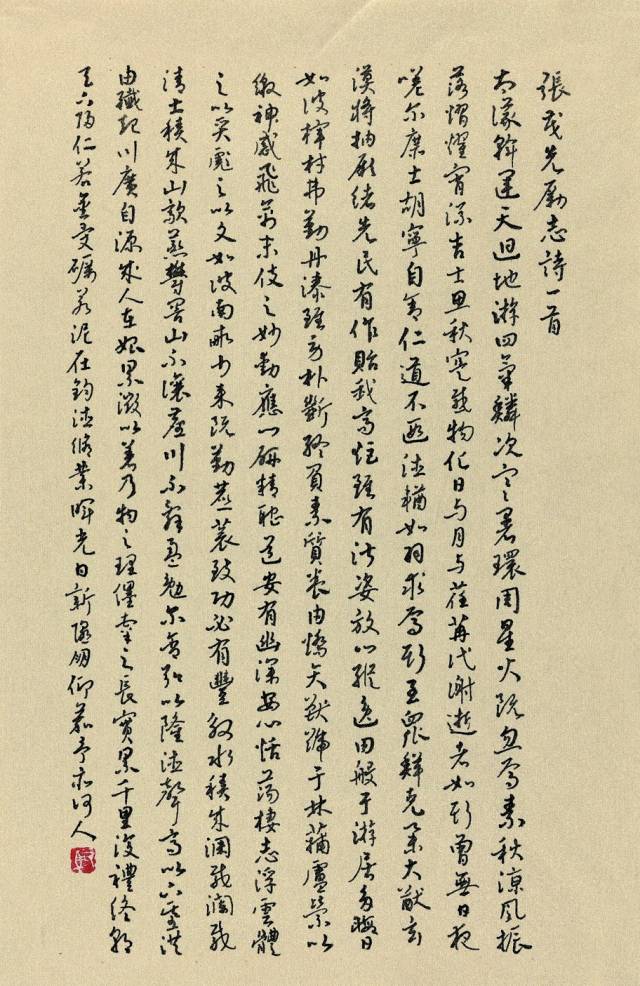 張茂先勵志詩一首
太儀斡運天迴地游四氣鱗次寒暑環周星火既忽焉素秋涼風振
落熠燿宵流吉士思秋寔感物化日与月与荏苒代謝逝者如斯曾無日夜
嗟尔庶士胡寧自舍仁道不遐德輶如羽求焉斯至眾鮮克舉大猷玄
漠將抽厥緒先民有作貽我高矩雖有淑姿放心縱逸田般于游居多暇日
如彼梓材弗勤丹漆雖勞朴斲終負素質養由矯矢獸號于林蒲盧縈以
繳神感飛禽末伎之妙動應心研精耽道安有幽深安心恬蕩棲志浮雲體
之以質彪之以文如彼南畝力耒既勤藨蓘致功必有豐殷水積成淵載瀾載
清土積成山歊蒸鬱冥山不讓塵川不辭盈勉尔含弘以隆德聲高以下基洪
由纖起川廣自源成人在始累微以著乃物之理纆牽之長實累千里復禮終朝
天下歸仁若金受礪若泥在鈞德脩業暉光日新隰朋仰慕予亦何人